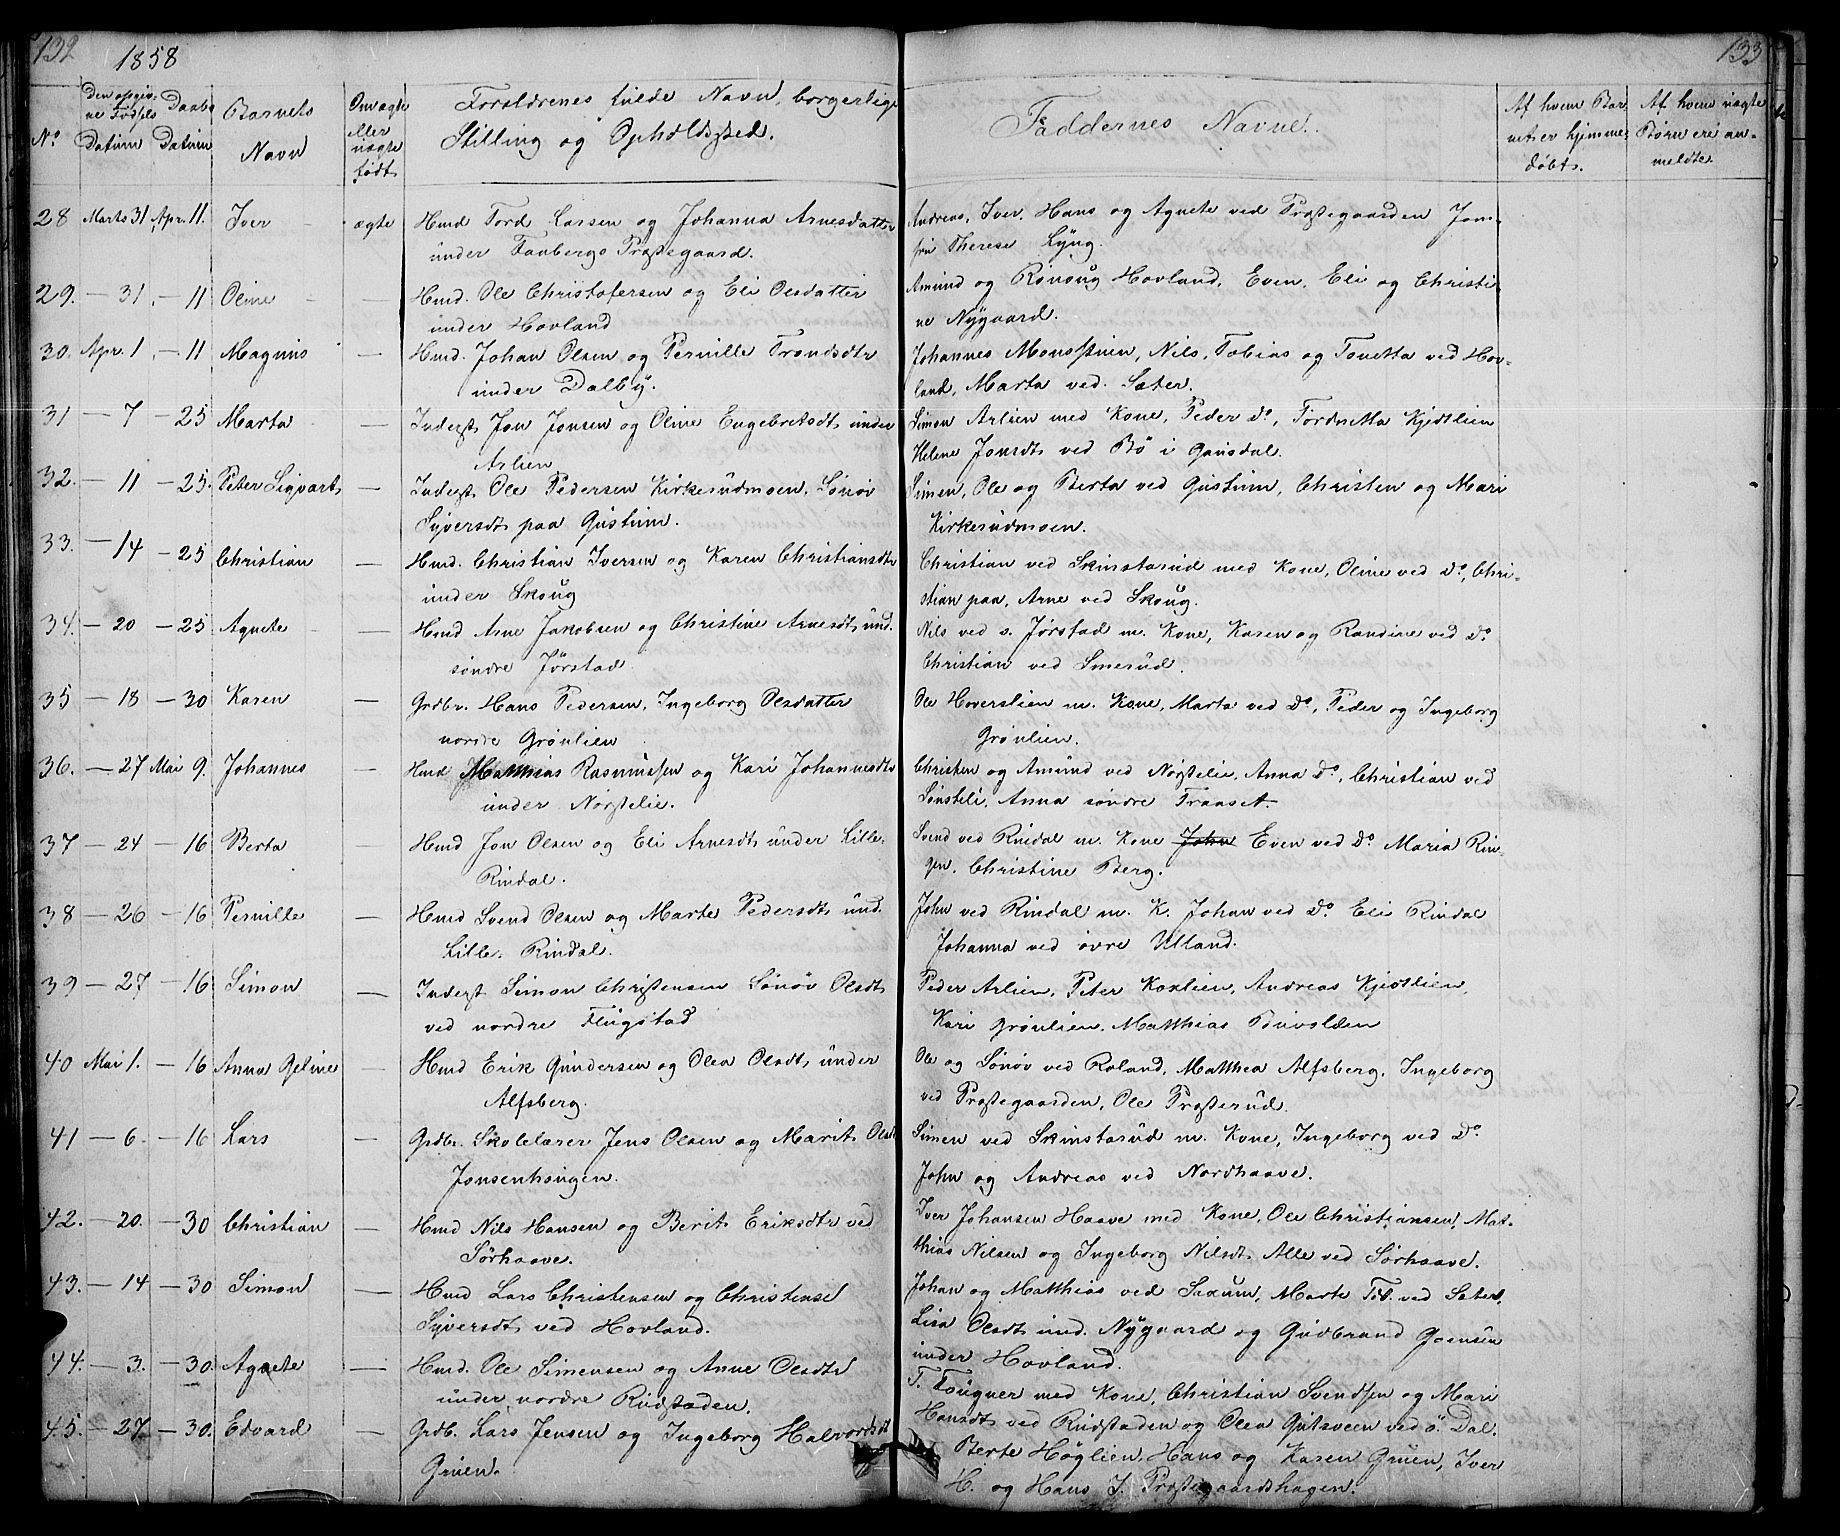 132 1858
No
Den opgiv-
ne Fødsels
Datum
Daabs
Datum
Barnets
Navn
Om ægte
eller
uægte
født
Forældrenes fulde Navn, borgerlige
Stilling og Opholdssted.
28 Marts 31 Apr. 11. Iver ægte Hmd Tord Larsen og Johanna Arnesdatter
under Faabergs Præstegaard.
29. — 31. — 11 Oline Hmd. Ole Christofersen og Eli Olsdatter
under Hovland
30. Apr. 1. — 11 Magnus — Hmd. Johan Olsen og Pernille Trondsdtr
under Dalby.
31 — 7 — 25 Marta — Inderst Jon Jonsen og Oline Engebretsdt under
Arlien
32. — 11 — 25. Peter Sigvart — Inderst Ole Pedersen Kirkerudmoen, Sønøv
Syversdt paa Gustum.
33. — 14 — 25 Christian — Hmd. Christian Iversen og Karen Christiansdtr
under Skoug
34. — 20 — 25 Agnete — Hmd Arne Jakobsen og Christine Arnesdt und.
søndre Jørstad
35 — 18 — 30 Karen — Grdbr. Hans Pedersen, Ingeborg Olsdatter
nordre Grønlien
36. — 27 Mai 9. Johannes — Hmd Matthias Rasmussen og Kari Johannesdtr
under Nørstelie.
37 — 24 — 16 Berta — Hmd Jon Olsen og Eli Arnesdt under Lille
Rindal.
38 — 26 — 16 Pernille — Hmd Svend Olsen og Marte Pedersdt und.
Lille Rindal.
39 — 27 — 16 Simon — Inderst Simon Christensen Sønøv Olsdt
ved nordre Flugstad
40 Mai 1. — 16 Anna Geline — Hmd Erik Gundersen og Olea Olsdt under
Alfsberg.
41 — 6. — 16 Lars — Grdbr. Skolelærer Jens Olsen og Marit Olsdt
Jonsenhougen.
42. — 20. — 30 Christian — Hmd Nils Hansen og Berit Eriksdtr ved
Sørhaave.
43. — 14 — 30 Simon — Hmd Lars Christensen og Christense
Syversdt ved Hovland.
44. — 3. — 30. Agnete — Hmd. Ole Simensen og Anne Olsdtr
under nordre Rudstaden.
45. — 27 — 30. Edvard — Grdb. Lars Jensen og Ingeborg Halvordsdt
Gruen.
133
Faddernes Navne.
Af hvem Bar
net er hjemme
døbt.
Af hvem uægte
Børn ere an-
meldte
Andreas, Iver, Hans og Agnete ved Præstegaarden Jom-
fru Therese Lyng.
Amund og Rønoug Hovland, Even, Eli og Christi-
ne Nygaard.
Johannes Monsstuen, Nils, Tobias og Tonetta ved Hov-
land, Marta ved Sæter.
Simon Arlien med Kone, Peder do, Tordnetta Kjødtlien
Helene Jonsdt ved Bø i Gausdal.
Simen, Ole og Berta ved Gustum, Christen og Mari
Kirkerudmoen.
Christian ved Skinstasrud med Kone, Oline ved do, Chri-
stian paa, Arne ved Skoug.
Nils ved s. Jørstad m. Kone, Karen og Randine ved do
Christian ved Smerud.
Ole Hoverslien m. Kone, Marta ved do, Peder og Ingeborg
Grønlien.
Christen og Amund ved Nørstelie, Anna do, Christian ved
Sønsteli, Anna søndre Traaset.
Svend ved Rindal m. Kone John Even ved do Maria Rin-
gen, Christine Berg.
John ved Rindal m. K. Johan ved do Eli Rindal
Johanna ved øvre Ulland.
Peder Arlien, Peter Kovlien, Andreas Kjødtlien,
Kari Grønlien, Matthias Buvolden
Ole og Sønøv ved Roland, Matthea Alfsberg, Ingeborg
ved Præstegaarden, Ole Præsterud.
Simen ved Skinstasrud m. Kone, Ingeborg ved do
John og Andreas ved Nordhaave.
Iver Johansen Haave med Kone, Ole Christiansen, Mat-
thias Nilsen og Ingeborg Nilsdt Alle ved Sørhaave.
Johan og Matthias ved Saxum, Marte ved Sæter,
Lisa Olsdt und. Nygaard og Gudbrand
under Hovland.
T. Fougner med Kone, Christian Svendsen og Mari
Hansdt ved Rudstaden og Olea Gutsveen ved ø. Dal.
Berte Høglien, Hans og Karen Gruen, Iver
H. og Hans J. Præstegaardshagen.